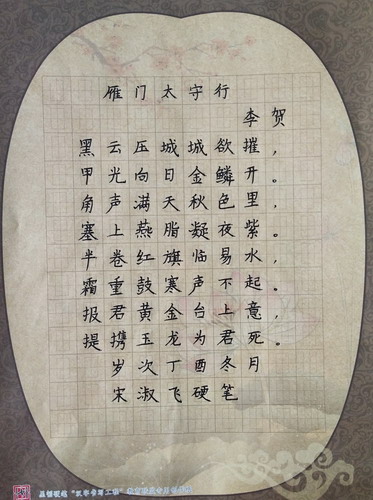 雁门太守行
李贺
黑云压城城欲摧，
甲光向日金鳞开。
角声满天秋色里，
塞上燕脂凝夜紫。
半卷红旗临易水，
霜重鼓寒声不起。
报君黄金台上意，
提携玉龙为君死。
岁次丁酉冬月
宋淑飞硬笔
"汉字书写工程"